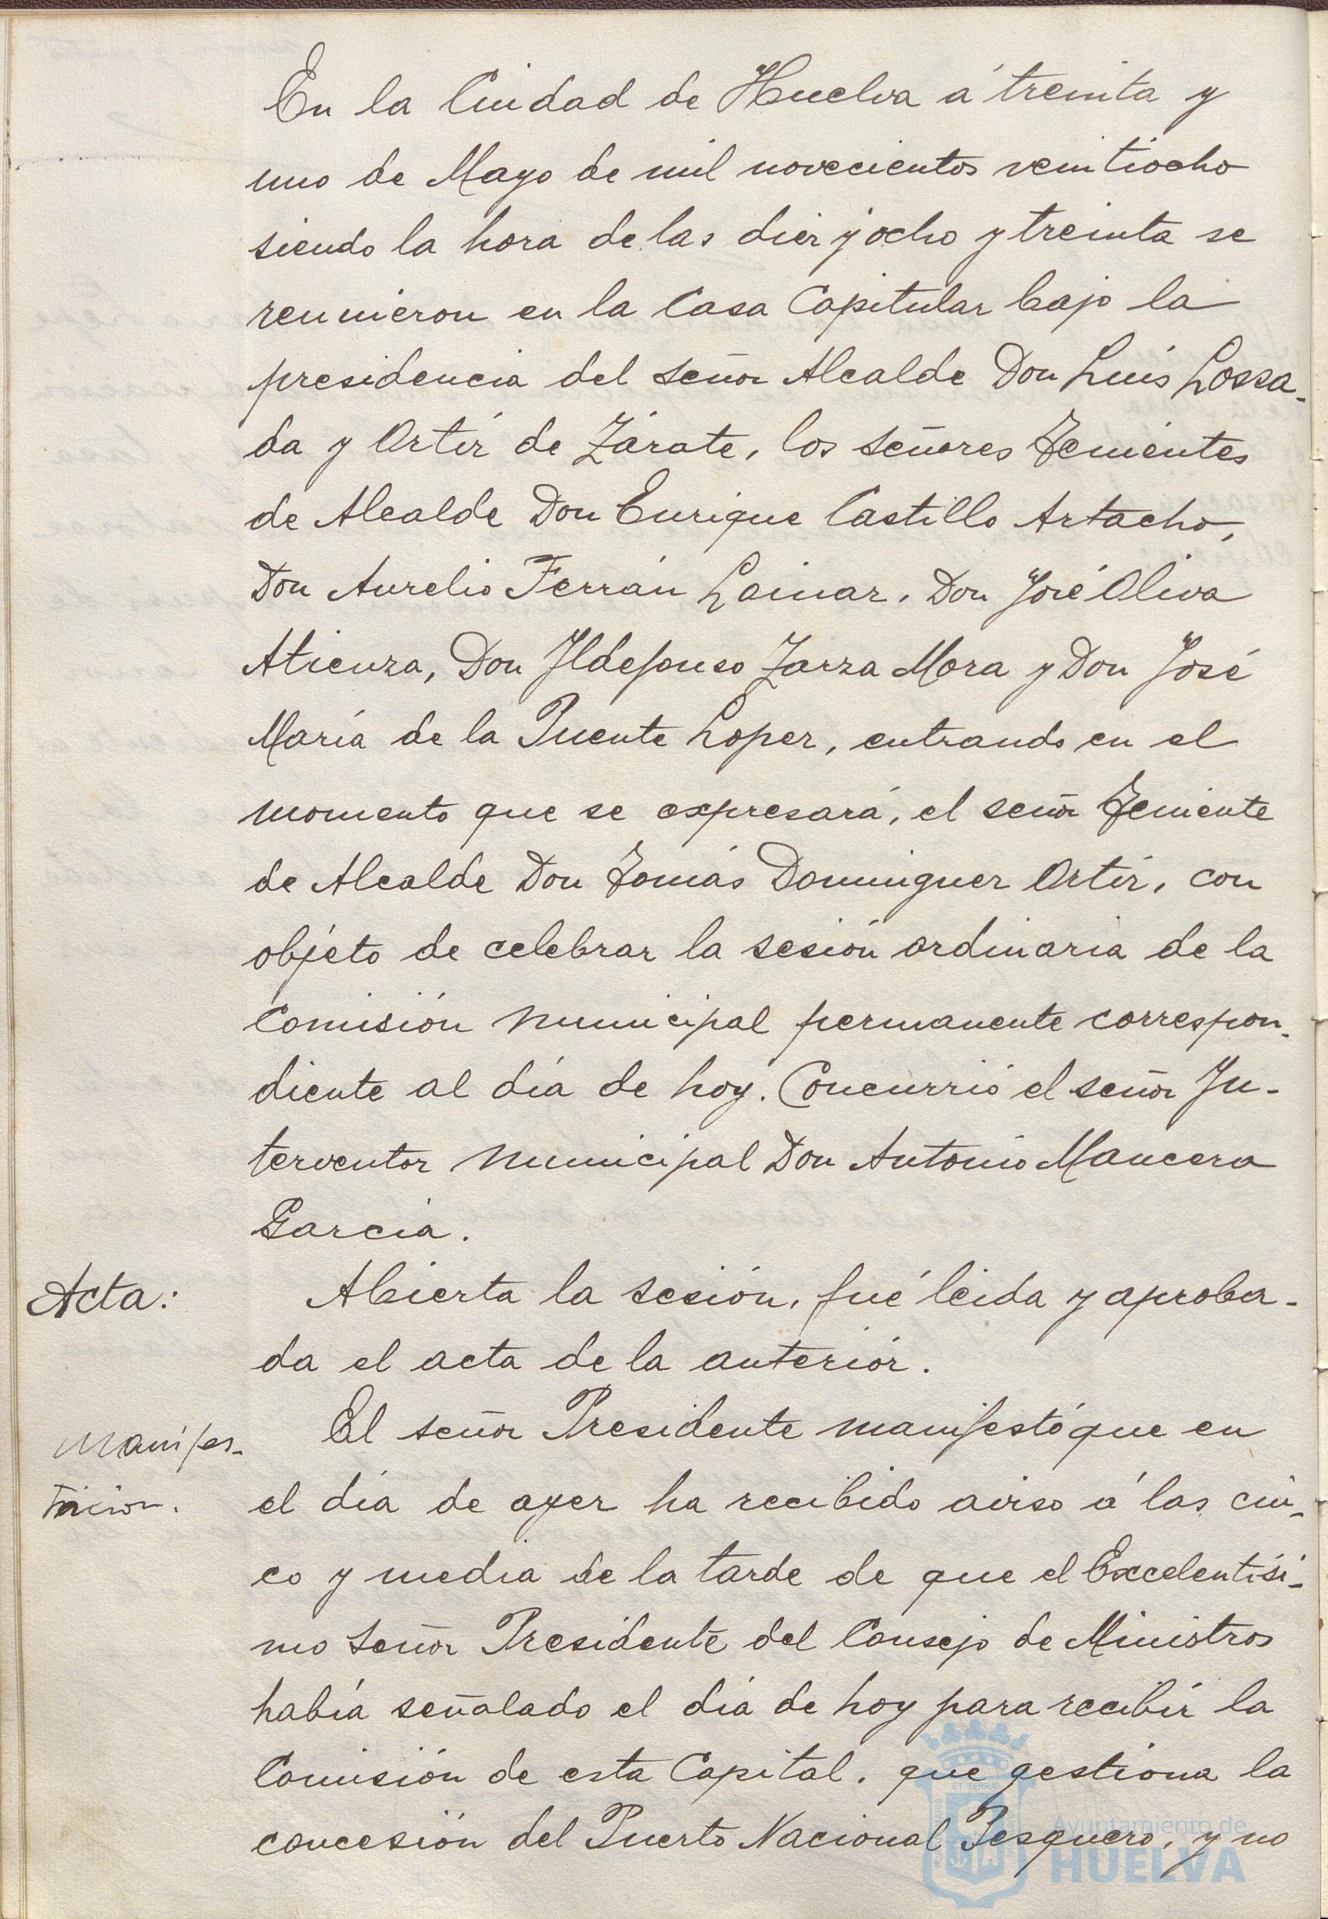 En la Ciudad de Huelva á treinta y
uno de Mayo de mil novecientos veintiocho
siendo la hora de las diez y ocho y treinta se
reunieron en la Casa Capitular bajo la
presidencia del señor Alcalde Don Luis Lossa-
da y Ortíz de Zárate, los señores Tenientes
de Alcalde Don Enrique Castillo Artacho,
Don Aurelio Ferrán Loinaz, Don José Oliva
Atienza, Don Ildefonso Zarza Mora y Don José
María de la Puente Lopez, entrando en el
momento que se expresará, el señor Teniente
de Alcalde Don Tomás Dominguez Ortíz, con
objeto de celebrar la sesión ordinaria de la
Comisión municipal permanente correspon-
diente al día de hoy. Concurrió el señor In-
terventor municipal Don Antonio Mancera
García.
Acta: Abierta la sesión, fué leida y aproba-
da el acta de la anteriór.
Manifes- El señor Presidente manifestó que en
tación. el día de ayer ha recibido aviso á las cin-
co y media de la tarde de que el Excelentísi-
mo señor Presidente del Consejo de Ministros
había señalado el día de hoy para recibír la
Comisión de esta Capital, que gestiona la
concesión del Puerto Nacional Pesquero, y no
Ayuntamiento de
HUELVA